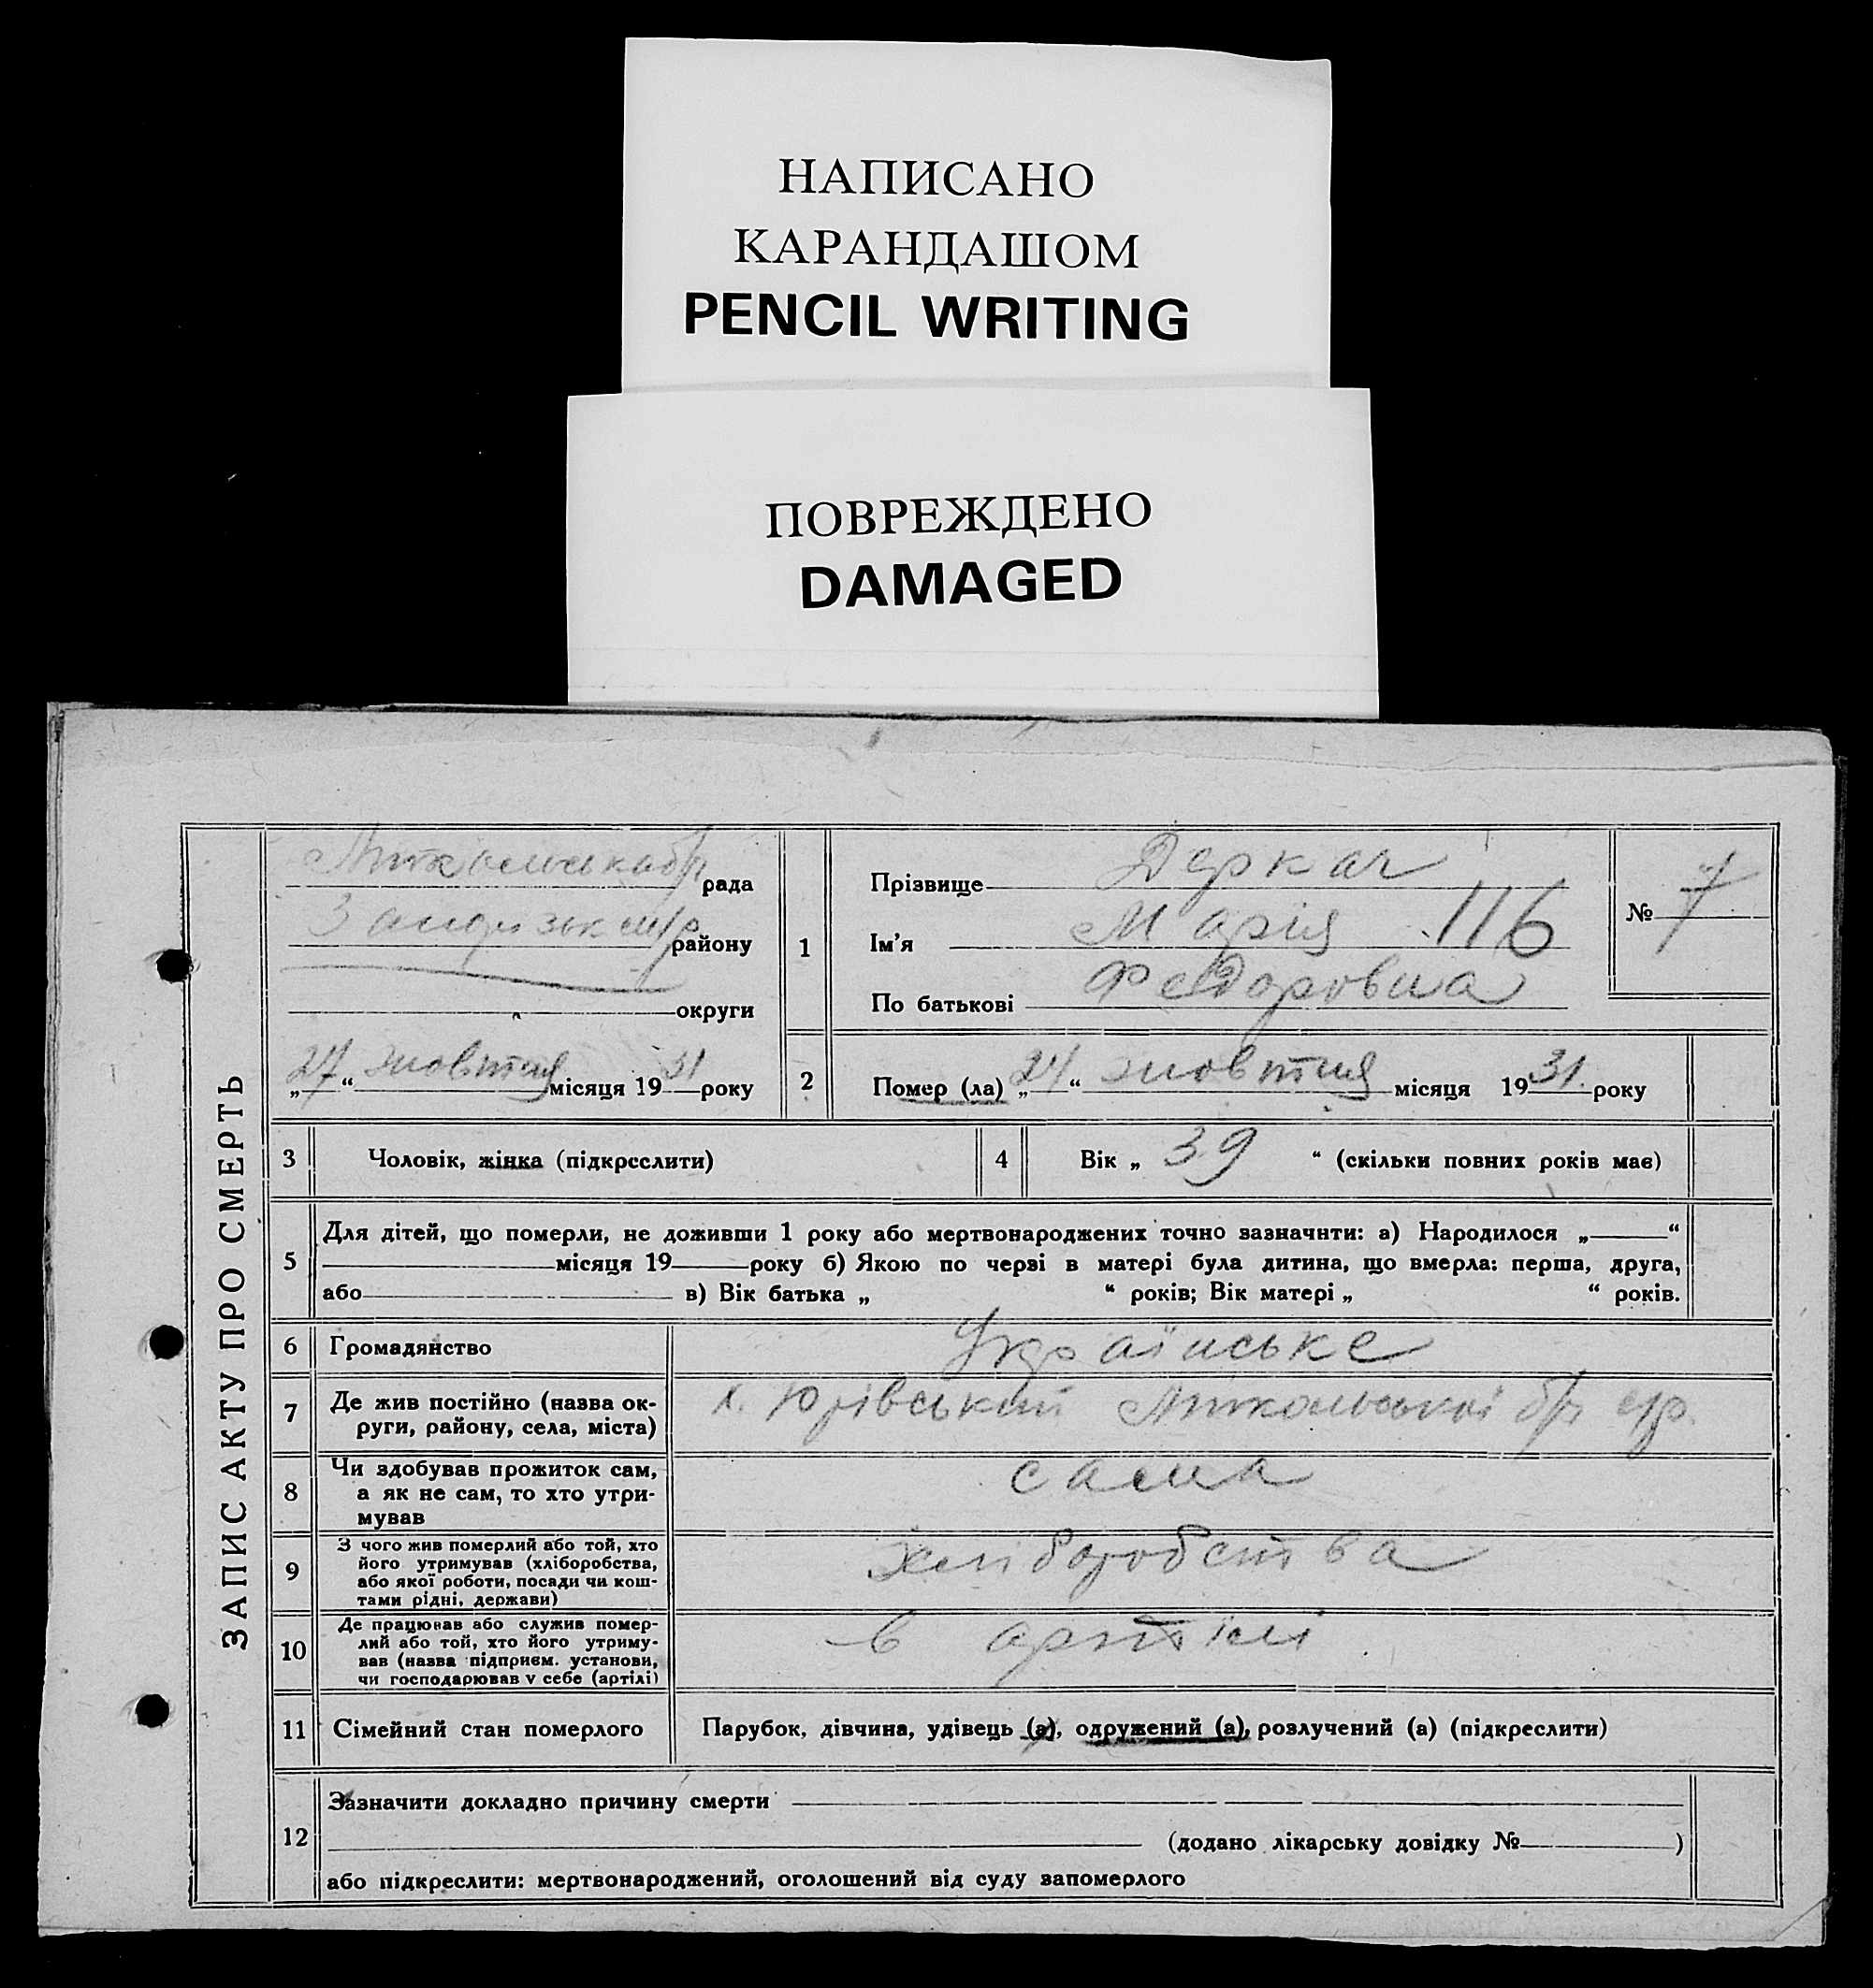 НАПИСАНО
КАРАНДАШОМ
PENCIL WRITING
ПОВРЕЖДЕНО
DAMAGED
ЗАПИС АКТУ ПРО СМЕРТЬ
рада
району
округи
„27“ жовтня місяця 1931 року
1
Прізвище Деркач
Ім’я Марія 116
По батькові Федоровна
№ 7
2 Помер (ла) „24“ жовтня місяця 1931 року
3 Чоловік, жінка (підкреслити)
4 Вік „ 39 “ (скільки повних років має)
5 Для дітей, що померли, не доживши 1 року або мертвонароджених точно зазначити: а) Народилося „ “
місяця 19 року б) Якою по черзі в матері була дитина, що вмерла: перша, друга,
або в) Вік батька „ “ років; Вік матері „ “ років.
6 Громадянство Українське
7 Де жив постійно (назва ок-
руги, району, села, міста) х. Юрівський
8 Чи здобував прожиток сам,
а як не сам, то хто утри-
мував
сама
9 З чого жив померлий або той, хто
його утримував (хліборобства,
або якої роботи, посади чи кош-
тами рідні, держави)
хліборобства
10 Де працював або служив помер-
лий або той, хто його утриму-
вав (назва підприєм. установи,
чи господарював у себе (артілі)
в артілі
11 Сімейний стан померлого Парубок, дівчина, удівець (а), одружений (а), розлучений (а) (підкреслити)
12 Зазначити докладно причину смерти
(додано лікарську довідку № )
або підкреслити: мертвонароджений, оголошений від суду запомерлого